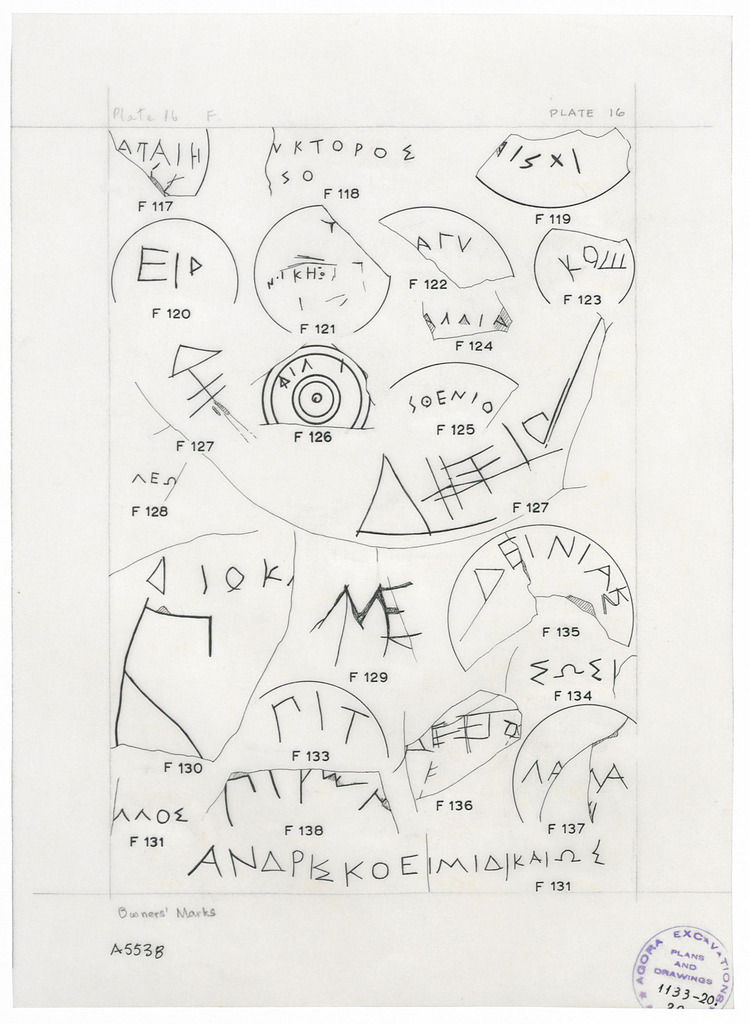 Plate 16 F.
PLATE 16
ΑΠΑΙΗ
F 117
ΚΤΟΡΟΣ
ΣΟ
F 118
ΙΣΧΙ
F 119
ΕΙΡ
F 120
ΙΚΗΣ
F 121
ΑΓΥ
F 122
F 123
ΛΔΙΑ
F 124
ΣΘΕΝΙΟ
F 125
ΦΙΛ
F 126
F 127
F 127
ΛΕΩ
F 128
ΜΕ
F 129
ΔΙΟΚ
F 130
ΔΕΙΝΙΑΣ
F 135
ΣΩΣΙ
F 134
ΠΙΤ
F 133
F 136
ΛΑ ΛΑ
F 137
ΛΛΟΣ
F 131
F 138
ΑΝΔΡΙΣΚΟΕΙΜΙΔΙΚΑΙΩΣ
F 131
Owners' Marks
A553B
AGORA EXCAVATIONS
PLANS
AND
DRAWINGS
1133-20.